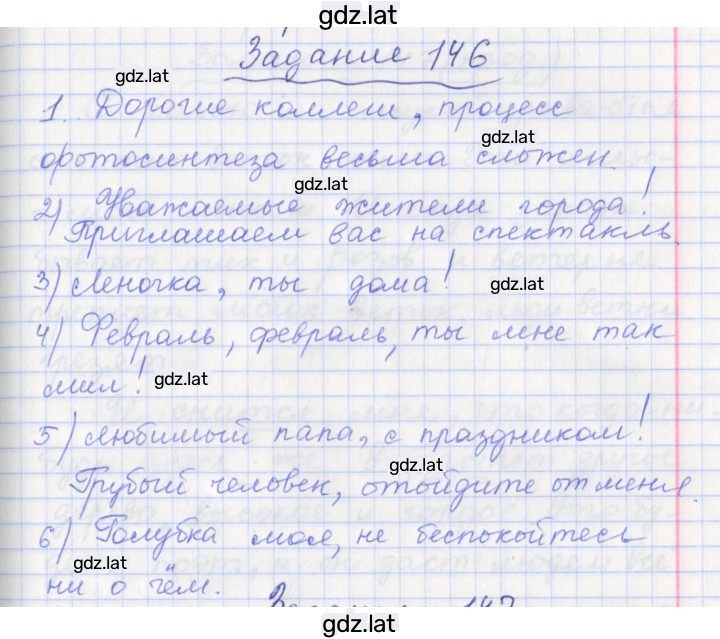 gdz.lat
Задание 146
gdz.lat
1. Дорогие коллеги, процесс
gdz.lat
фотосинтеза весьма сложен.
gdz.lat
2) Уважаемые жители города!
Приглашаем вас на спектакль.
3) Леночка, ты дома!
gdz.lat
4) Февраль, февраль, ты мне так
мил!
gdz.lat
5) Любимый папа, с праздником!
gdz.lat
Грубый человек, отойдите от меня.
6) Голубка моя, не беспокойтесь
gdz.lat
ни о чём.
Задание 147
gdz.lat